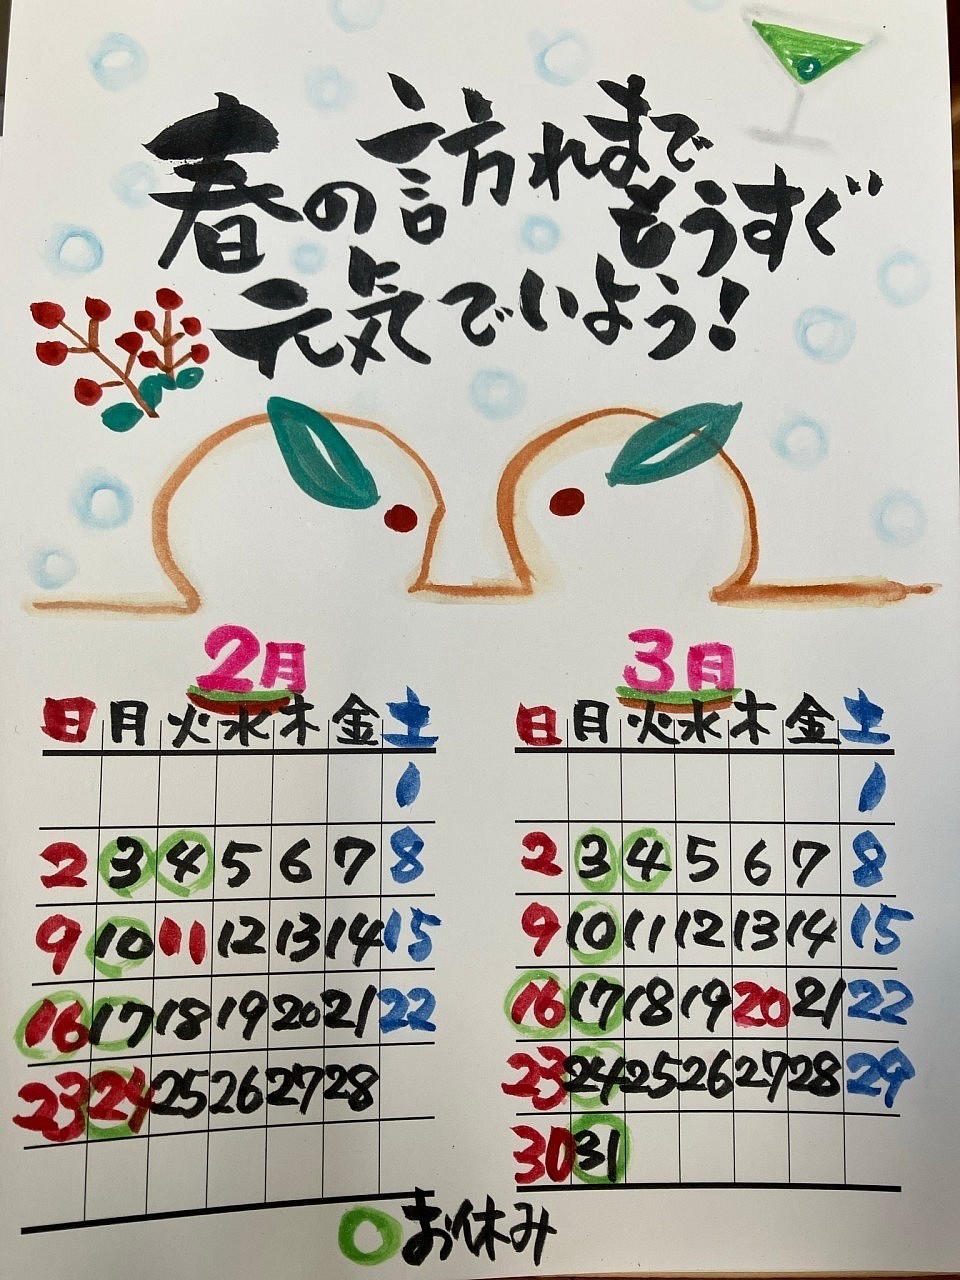 春の訪れまで
もうすぐ
元気でいよう!
2月
日 月 火 水 木 金 土
1
2 3 4 5 6 7 8
9 10 11 12 13 14 15
16 17 18 19 20 21 22
23 24 25 26 27 28
3月
日 月 火 水 木 金 土
1
2 3 4 5 6 7 8
9 10 11 12 13 14 15
16 17 18 19 20 21 22
23 24 25 26 27 28 29
30 31
お休み